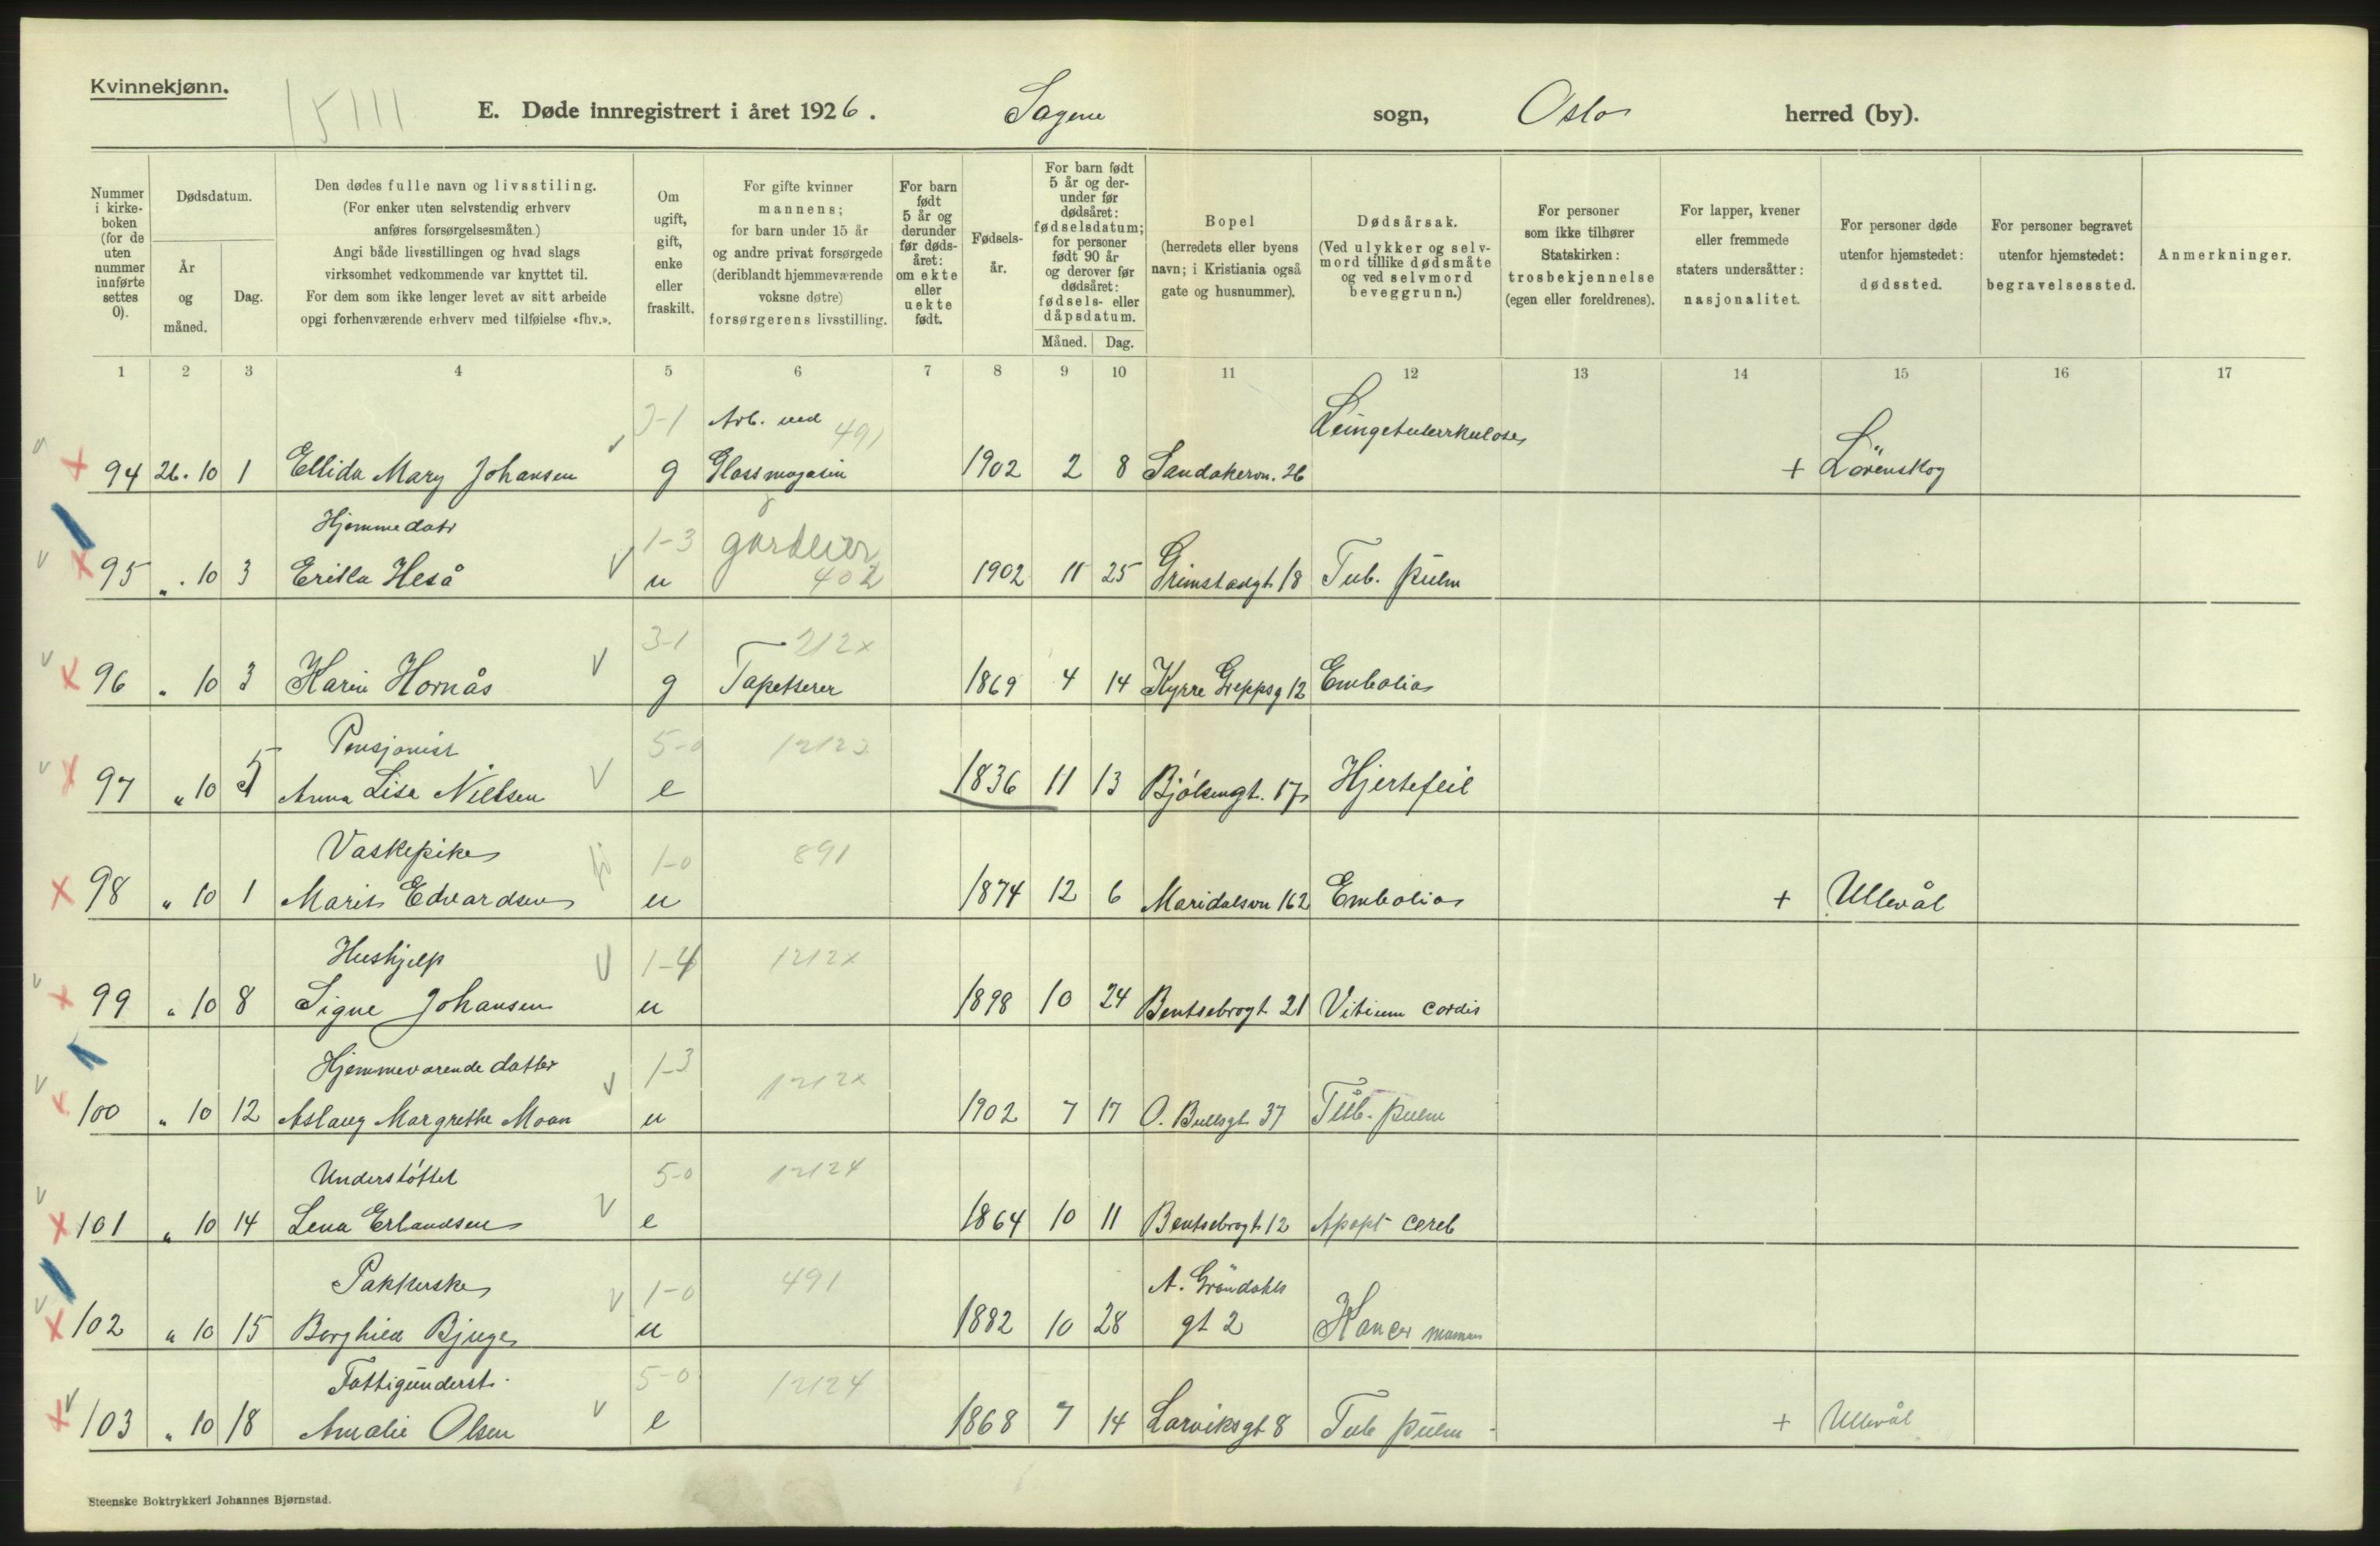 Kvinnekjønn.
15111
E. Døde innregistrert i året 1926. Sagene sogn, Oslo herred (by).
Nummer i kirkeboken (for de uten nummer innførte settes 0).
Dødsdatum.
År og måned.
Dag.
Den dødes fulle navn og livsstiling.
(For enker uten selvstendig erhverv
anføres forsørgelsesmåten.)
Angi både livsstillingen og hvad slags
virksomhet vedkommende var knyttet til.
For dem som ikke lenger levet av sitt arbeide
opgi forhenværende erhverv med tilføielse «fhv.».
Om ugift, gift, enke eller fraskilt.
For gifte kvinner
mannens;
for barn under 15 år
og andre privat forsørgede
(deriblandt hjemmeværende
voksne døtre)
forsørgerens livsstilling.
For barn født 5 år og derunder før dødsåret: om ekte eller uekte født.
Fødselsår.
For barn født 5 år og derunder før dødsåret: fødselsdatum; for personer født 90 år og derover før dødsåret: fødsels- eller dåpsdatum.
Måned. Dag.
Bopel
(herredets eller byens
navn; i Kristiania også
gate og husnummer).
Dødsårsak.
(Ved ulykker og selvmord tillike dødsmåte
og ved selvmord
beveggrunn.)
For personer
som ikke tilhører
Statskirken:
trosbekjennelse
(egen eller foreldrenes).
For lapper, kvener
eller fremmede
staters undersåtter:
nasjonalitet.
For personer døde
utenfor hjemstedet:
dødssted.
For personer begravet
utenfor hjemstedet:
begravelsessted.
Anmerkninger.
1 2 3 4 5 6 7 8 9 10 11 12 13 14 15 16 17
Arb. ved 491 Lungetuberkulose
94 26. 10 1 Ellida Mary Johansen g Glassmagasin 1902 2 8 Sandakervn. 26 + Lörenskog
Hjemmedatr 1-3 gårdeier
95 " . 10 3 Erikka Heså u 402 1902 11 25 Grimstadgt. 18 Tub. pulm
3-1 212x
96 " 10 3 Karin Hornås g Tapetserer 1869 4 14 Kyrre Greppsg 12 Emboli
Pensjonist 5-0 12123
97 " 10 5 Anna Lisa Nielsen e 1836 11 13 Bjølsengt. 17 Hjertefeil
Vaskepike 1-0 891
98 " 10 1 Marit Edvardsen u 1874 12 6 Maridalsvn 162 Emboli + Ullevål
Hushjelp 1-4 1212x
99 " 10 8 Signe Johansen u 1898 10 24 Bentsebrogt 21 Vitium cordis
Hjemmeværende datter 1-3 1212x
100 " 10 12 Aslaug Margrethe Moan u 1902 7 17 O. Bullsgt 37 Tub. pulm
Understøttet 5-0 12124
101 " 10 14 Lena Erlandsen e 1864 10 11 Bentsebrogt 12 Apopl cereb
Pakkerske 1-0 491 A. Gröndahls
102 " 10 15 Borghild Bjuge u 1882 10 28 gt 2 Kancer mamm
Fattigunderst. 5-0 12124
103 " 10 18 Amalie Olsen e 1868 7 14 Larviksgt 8 Tub pulm + Ullevål
Steenske Boktrykkeri Johannes Bjørnstad.